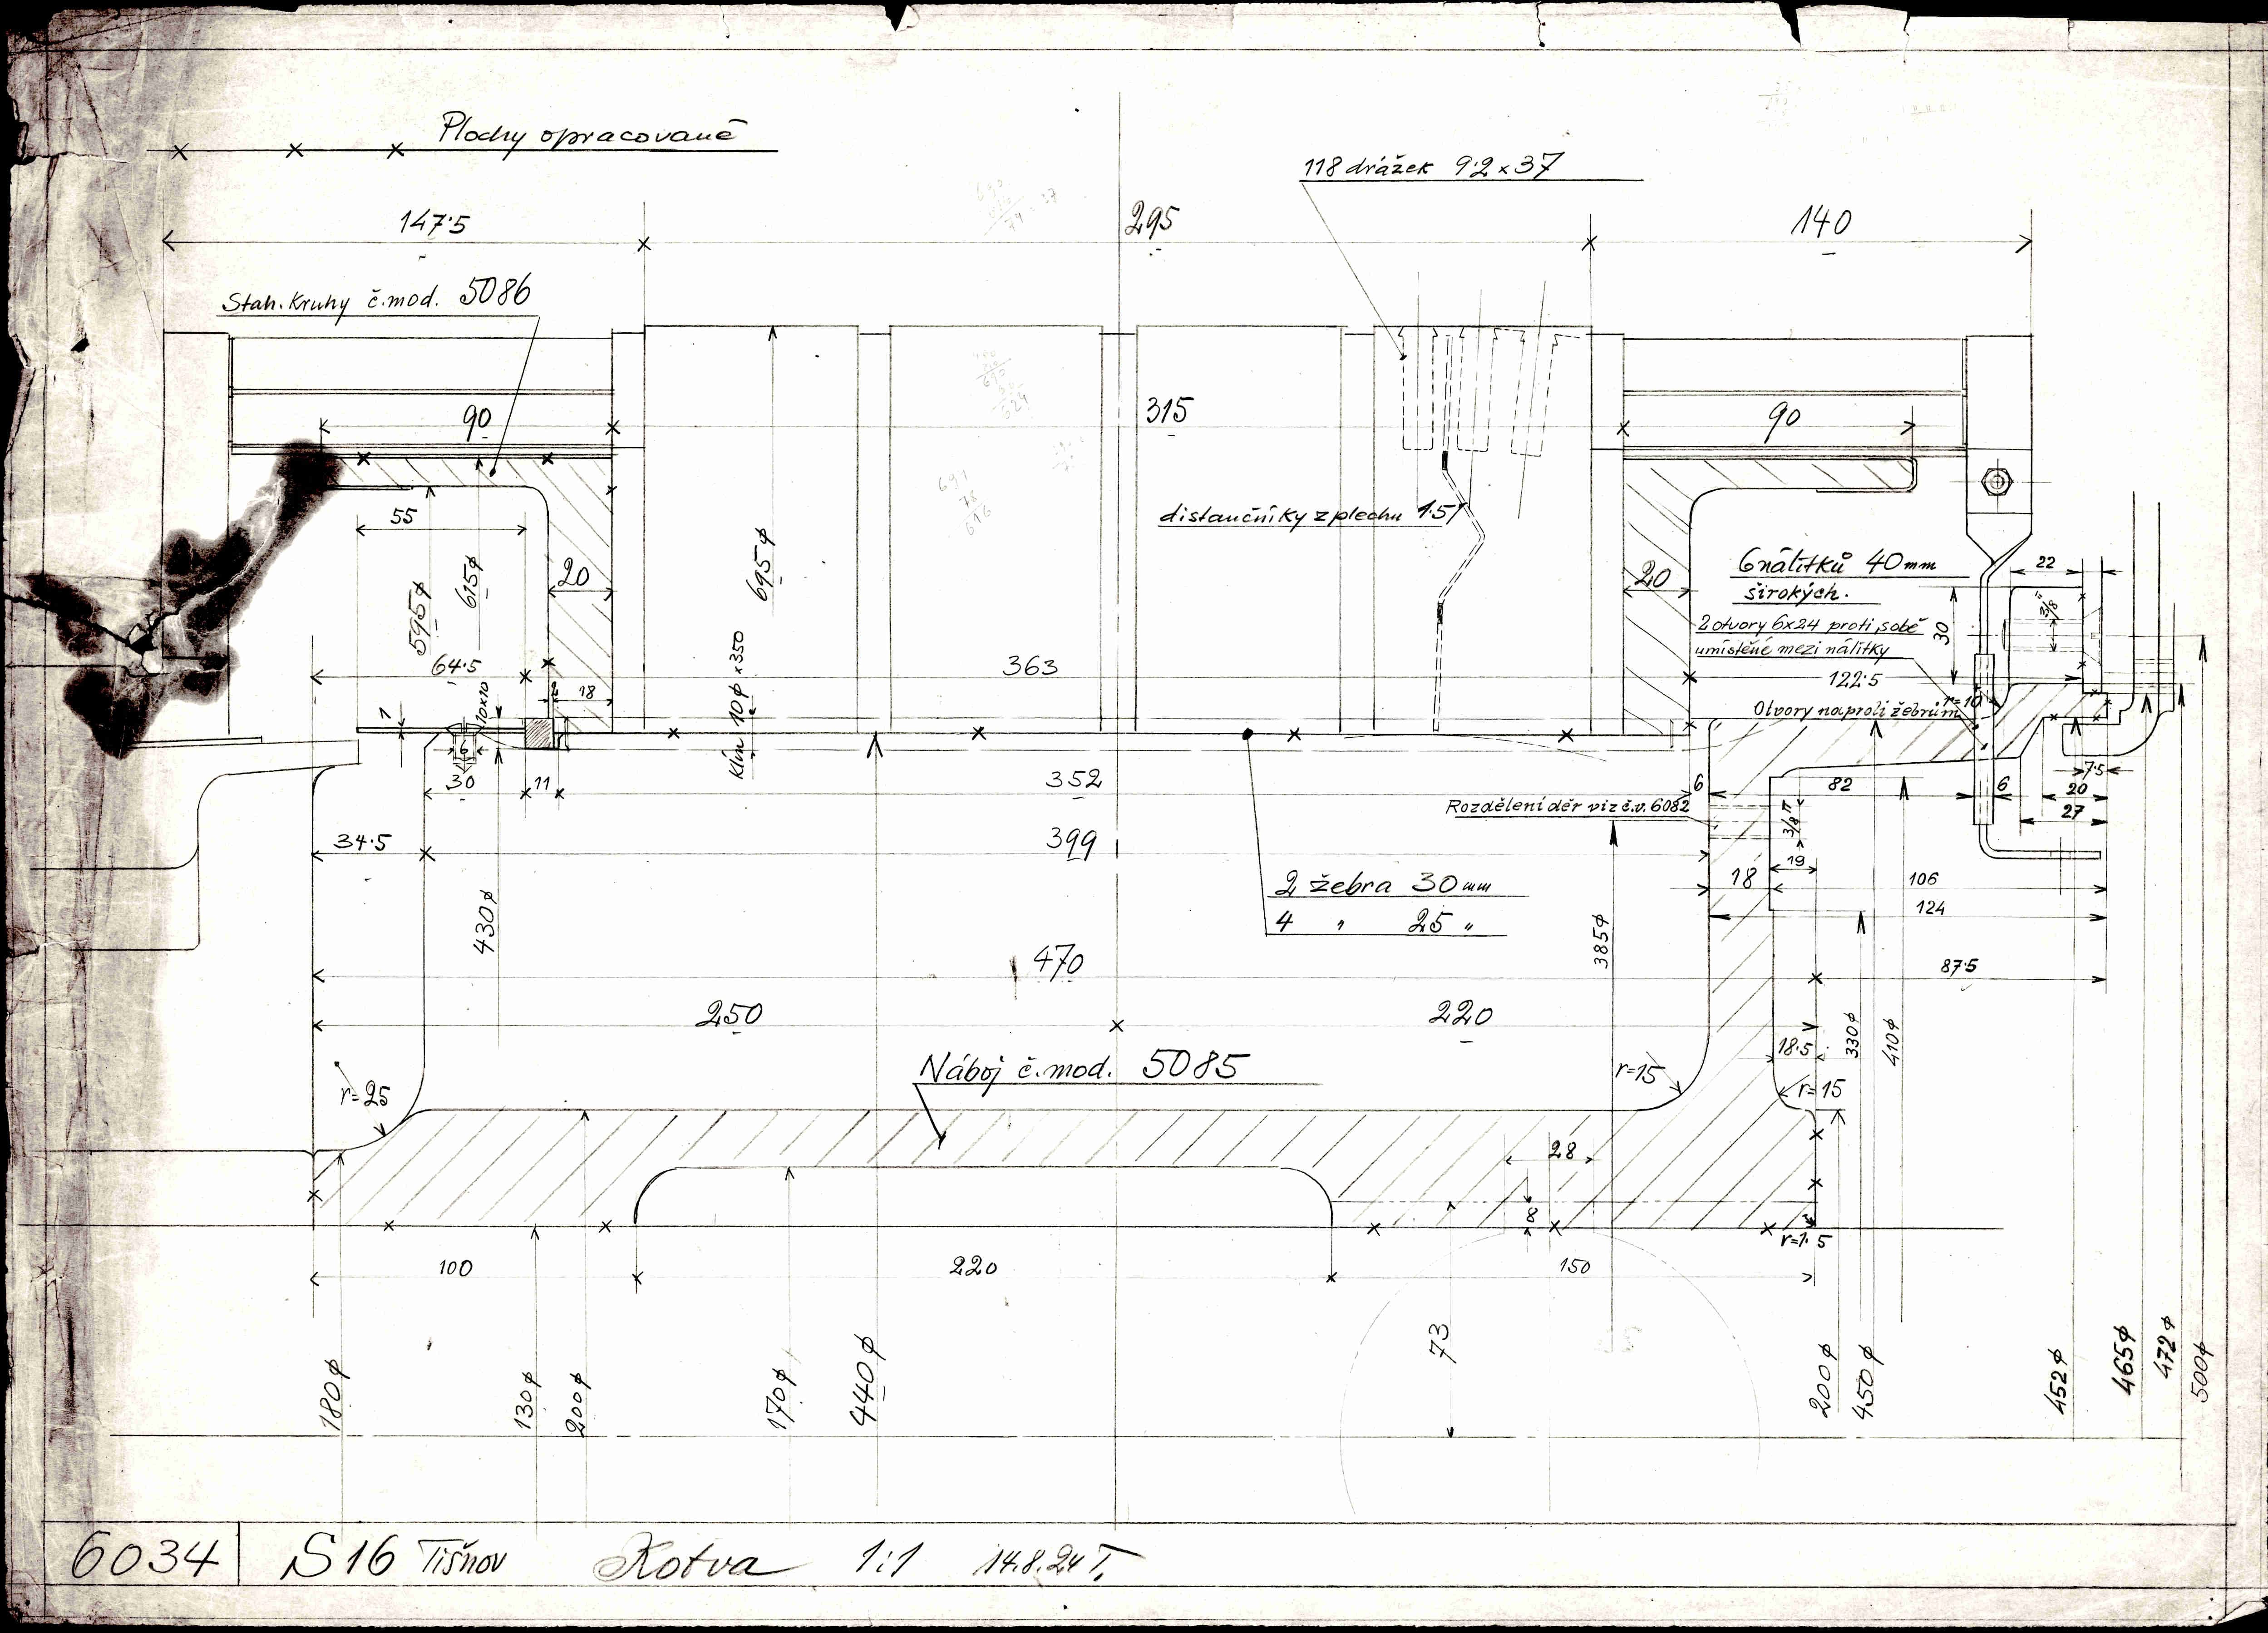 Plochy opracované
118 drážek 9·2 x 37
147·5
295
140
Stah. Kruhy č. mod. 5086
90
315
90
55
distančníky z plechu 1·5
595⌀
615⌀
20
695⌀
20
6 nálitků 40 mm
širokých.
22
3/8"
30
2 otvory 6x24 proti sobě
umístěné mezi nálitky
64·5
363
122·5
10x10
2
18
Klín 10⌀ x 350
r=10
Otvory naproti žebrům
1
6
30
11
352
6
82
6
7·5
20
27
Rozdělení děr viz č.v. 6082
3/8"
34·5
399
19
18
106
124
2 žebra 30 mm
4 " 25 "
430⌀
385⌀
470
87·5
250
220
18·5
330⌀
410⌀
Náboj č. mod. 5085
r=25
r=15
r=15
28
8
r=1·5
100
220
150
73
180⌀
130⌀
200⌀
170⌀
440⌀
200⌀
450⌀
452⌀
465⌀
472⌀
500⌀
6034
S16 Tišnov Kotva 1:1 14.8.24 T.